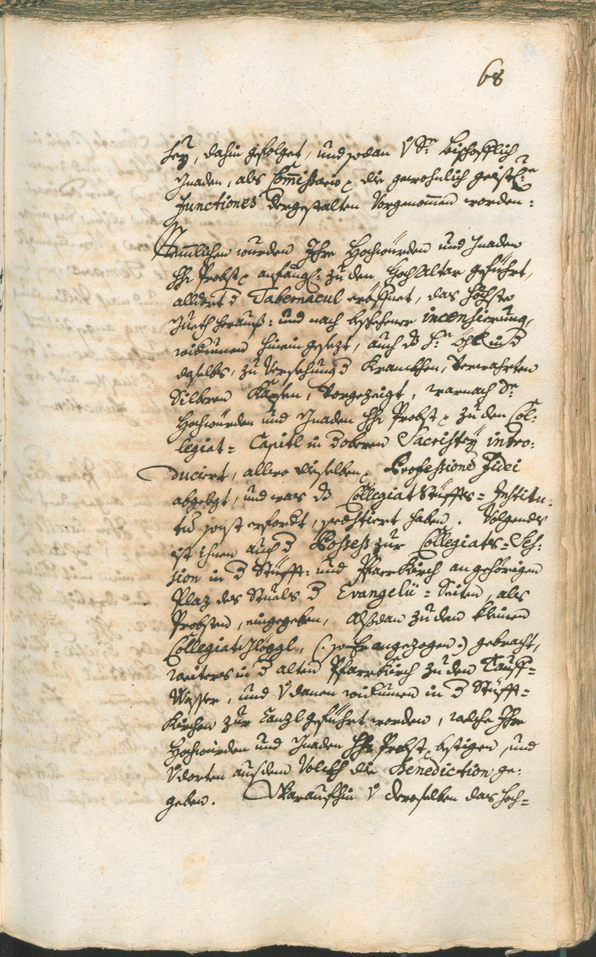 68
sey, dahin gefolget, und sodan v Sr. bischofflich
Gnaden, als Commissario die gewohnlich geistl.
Functiones dergestalten vorgenommen worden:
Nemlichen wurden Ihro Hochwürden und Gnaden
Hr. Probst anfängl. zu den Hochaltar geführt,
alldort d Tabernacul eröffnet, das Höchste
Gueth heraus: und nach beschehener incensierung,
widrumen hinein gesezt, auch
deselbs, zu Versehung d Krancken, verwahrten
Silberen Kapsen, vorgezeigt, warnach Sr.
Hochwürden und Gnaden Hr. Probst zu den Col:
legiat-Capitl in d oberen Sacristey intro:
duciert, allwo dieselben Professionem Fidei
abgelegt, und was d Collegiat Stüffts-Institu:
tum sonst erfordert, praestiert haben. Volgends
ist ihnen auch d Possess zur Collegiats-Ses:
sion in d Stüfft- und Pfarrkirch angehörigen
Plaz des Stuels d Evangelii-Seiten, als
Probsten, eingegeben, alsdan zu dem kleinen
Collegiatsglöggl, (: so Er angezogen :) gebracht,
weiters in d alten Pfarrkirch zu den Tauff-
Wasser, und v danen widrumen in d Stüfft-
Kirchen zur Canzl geführt worden, welche Ihro
Hochwürden und Gnaden Hr. Probst bestigen, und
v dorten aus dem Volckh die Benediction ge:
geben. Waraufhin v deroselben das Hoch-